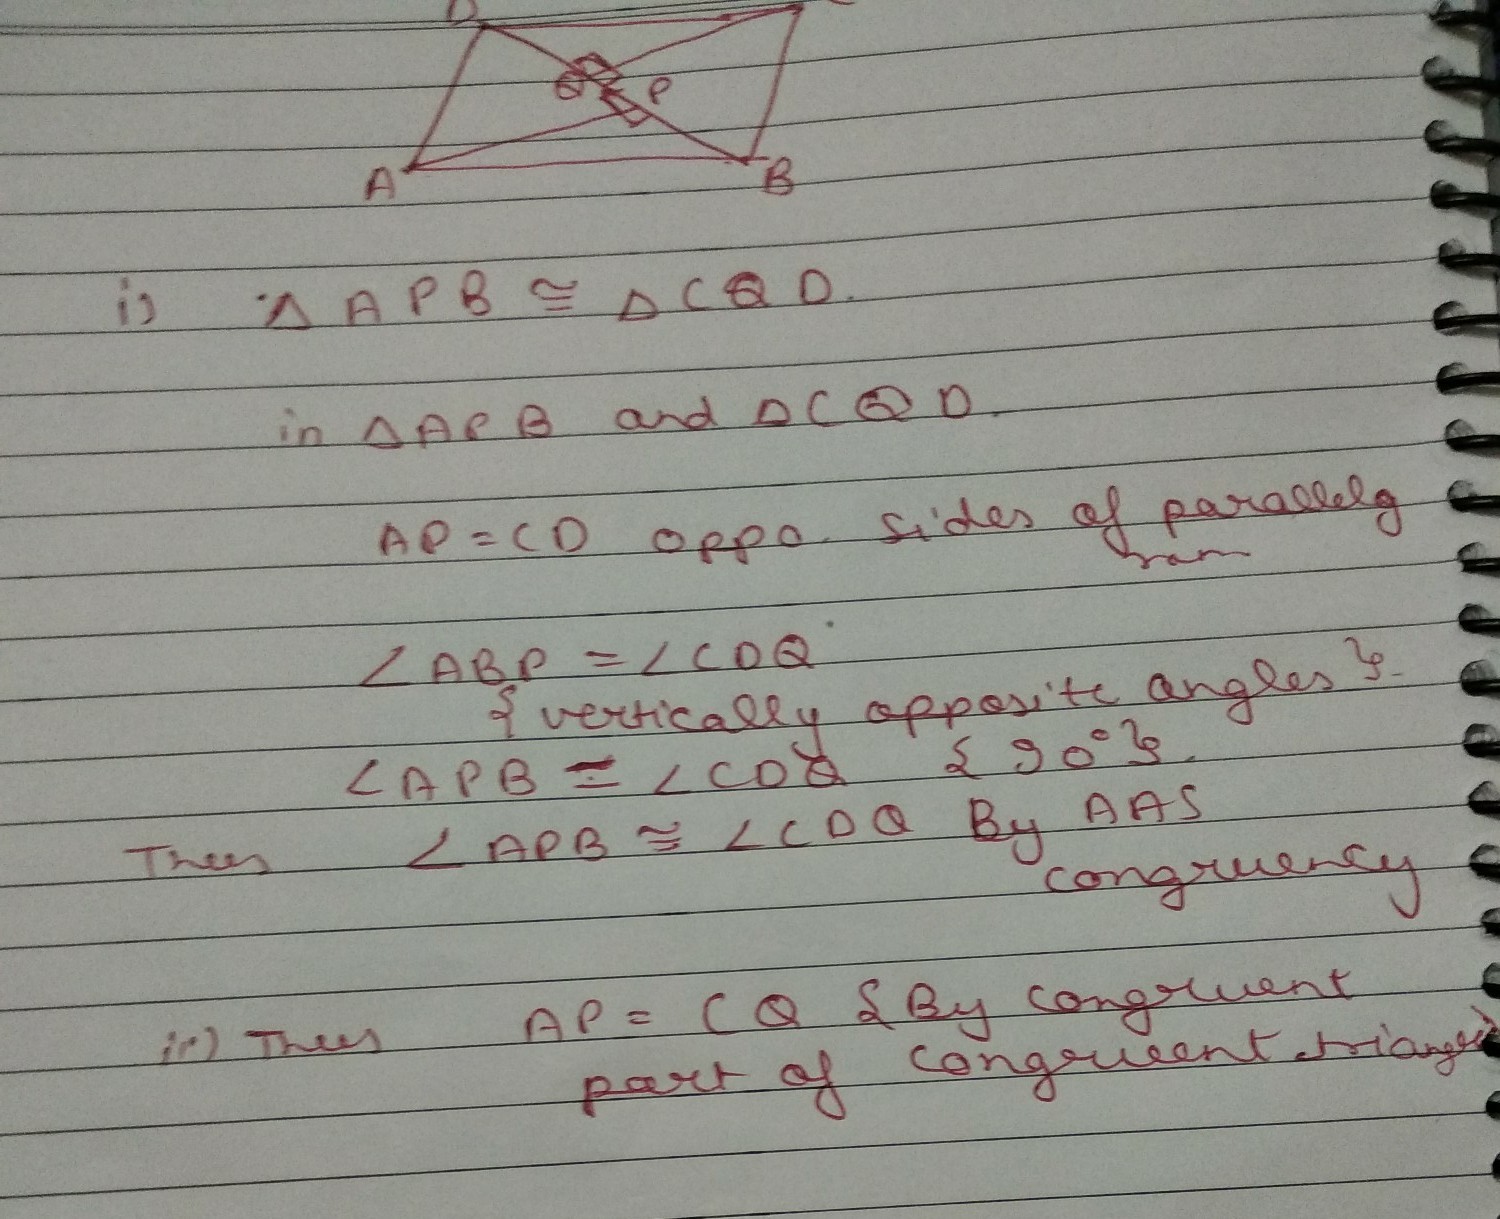 D
Q P
A B
i) Δ APB ≅ Δ CQD.
in ΔAPB and ΔCQD.
AP = CD oppo. sides of parallelg
ram
∠ABP = ∠CDQ
{vertically opposite angles}.
∠APB = ∠CDQ {90°}.
Thus ∠APB ≅ ∠CDQ By AAS
congruency
ii) Thus AP = CQ {By congruent
part of congruent triangle}